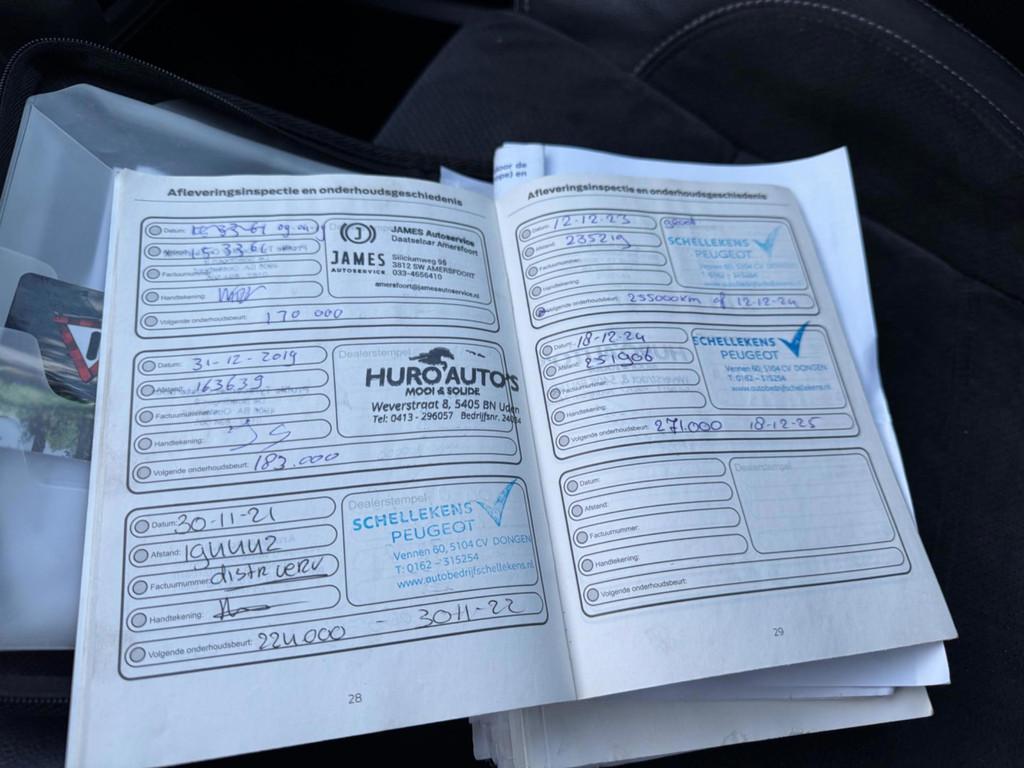 Afleveringsinspectie en onderhoudsgeschiedenis
Datum:
Afstand: 153361
Factuurnummer:
Handtekening:
Volgende onderhoudsbeurt: 170 000
JAMES
AUTOSERVICE
JAMES Autoservice
Daatselaar Amersfoort
Siliciumweg 98
3812 SW AMERSFOORT
033-4656410
amersfoort@jamesautoservice.nl
Datum: 31-12-2019
Afstand: 163639
Factuurnummer:
Handtekening:
Volgende onderhoudsbeurt: 183.000
Dealerstempel
HURO AUTO'S
MOOI & SOLIDE
Weverstraat 8, 5405 BN Uden
Tel: 0413 - 296057 Bedrijfsnr.
Datum: 30-11-21
Afstand:
Factuurnummer: distr verv
Handtekening:
Volgende onderhoudsbeurt: 224000 - 30-11-22
Dealerstempel
SCHELLEKENS
PEUGEOT
Vennen 60, 5104 CV DONGEN
T: 0162 - 315254
www.autobedrijfschellekens.nl
28
Afleveringsinspectie en onderhoudsgeschiedenis
Datum: 12-12-23 groot
Afstand: 235219
Factuurnummer:
Handtekening:
Volgende onderhoudsbeurt: 255000km of 12-12-24
SCHELLEKENS
PEUGEOT
Vennen 60, 5104 CV DONGEN
Datum: 18-12-24
Afstand: 251906
Factuurnummer:
Handtekening:
Volgende onderhoudsbeurt: 271.000 18-12-25
SCHELLEKENS
PEUGEOT
Vennen 60, 5104 CV DONGEN
T: 0162 - 315254
www.autobedrijfschellekens.nl
Datum:
Afstand:
Factuurnummer:
Handtekening:
Volgende onderhoudsbeurt:
Dealerstempel
29